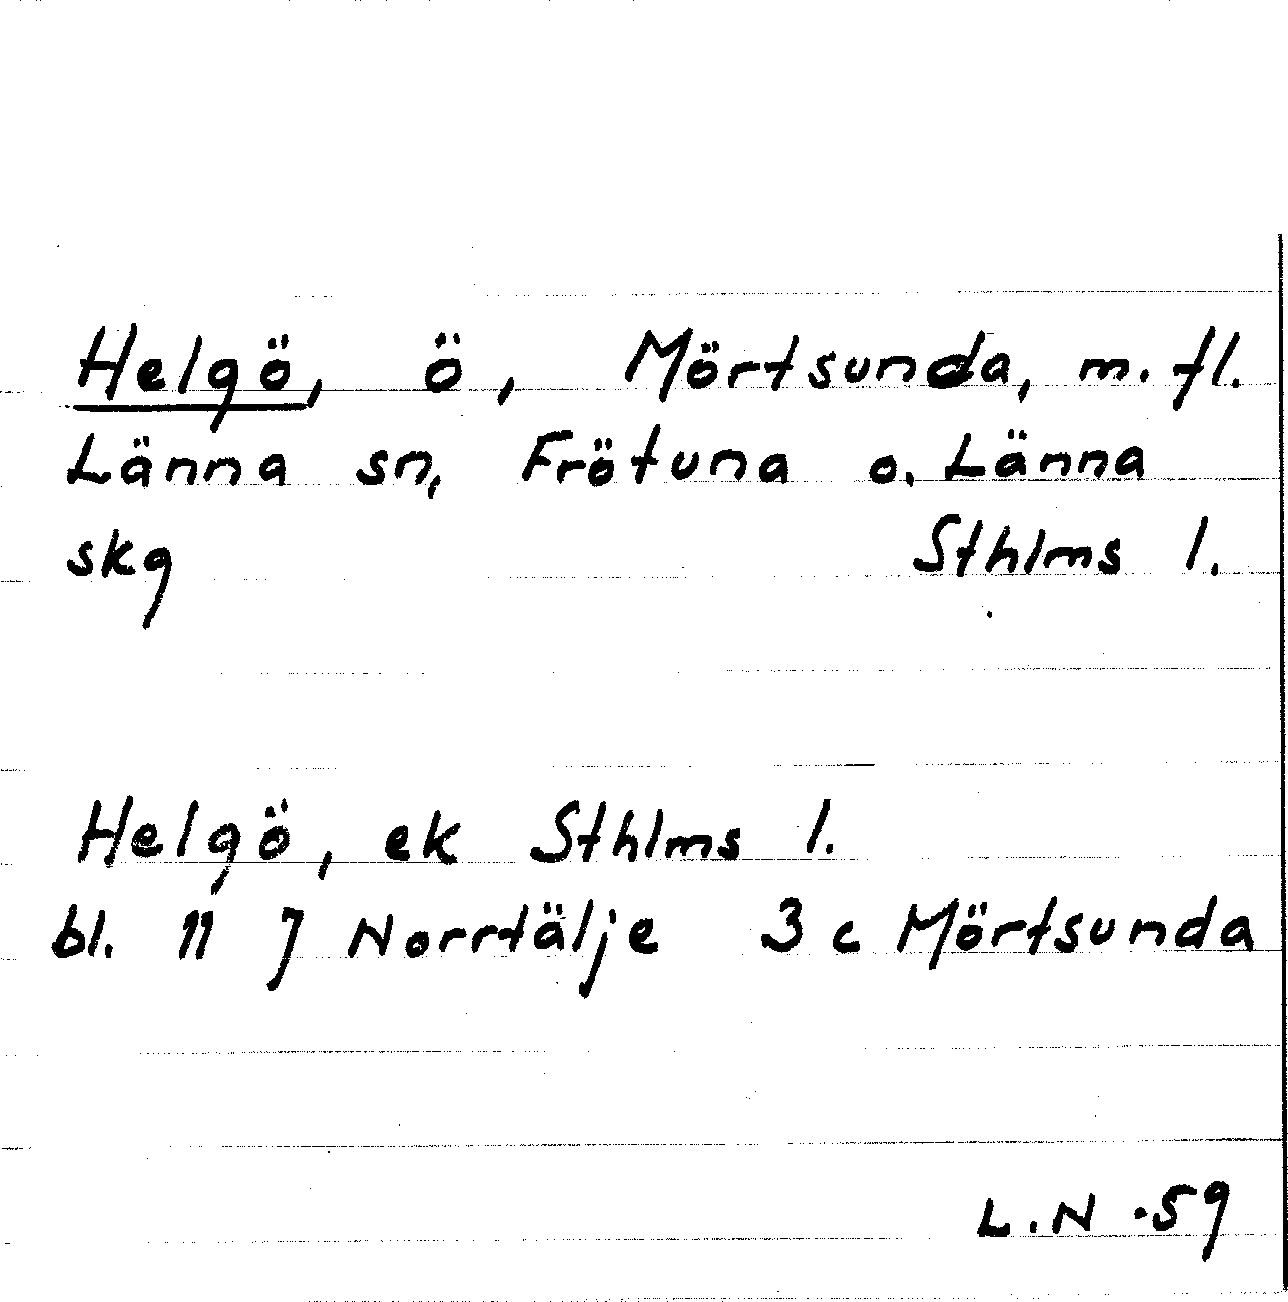 Helgö, ö, Mörtsunda, m. fl.
Länna sn, Frötuna o. Länna
skg Sthlms l.
Helgö, ek Sthlms l.
bl. 11 J Norrtälje 3 c Mörtsunda
L.N.59